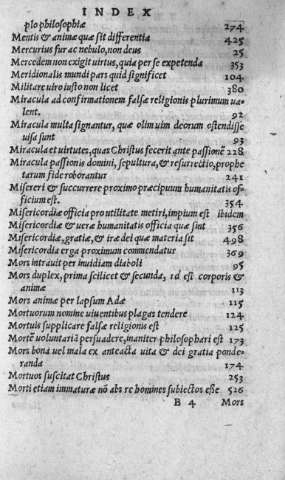 INDEX
plo philosophiæ 274
Mentis & animæ quæ sit differentia 425
Mercurius fur ac nebulo, non deus 25
Mercedem non exigit virtus, quia per se expetenda 353
Meridionalis mundi pars quid significet 104
Militare uiro iusto non licet 380
Miracula ad confirmationem falsæ religionis plurimum ua=
lent. 92
Miracula multa signantur, quæ olim uim deorum ostendisse
uisa sunt 93
Miracula et uirtutes, quas Christus fecerit ante passionē 228
Miracula passionis domini, sepultura, & resurrectio, prophe
tarum fide roborantur 241
Misereri & succurrere proximo præcipuum humanitatis of=
ficium est. 354
Misericordiæ officia pro utilitate metiri, impium est ibidem
Misericordiæ & ueræ humanitatis officia quæ sint 356
Misericordia, gratiæ, & iræ dei quæ materia sit 498
Misericordia erga proximum commendatur 369
Mors intrauit per inuidiam diaboli 95
Mors duplex, prima scilicet & secunda, id est corporis &
animæ 113
Mors animæ per lapsum Adæ 115
Mortuorum nomine uiuentibus plagas tendere 124
Mortuis supplicare falsæ religionis est 125
Mortē uoluntariā persuadere, maniter philosophari est 173
Mors bona uel mala ex anteacta uita & dei gratia ponde=
randa 174
Mortuos suscitat Christus 253
Morti etiam immaturæ nō abs re homines subiectos esse 526
B 4 Mors